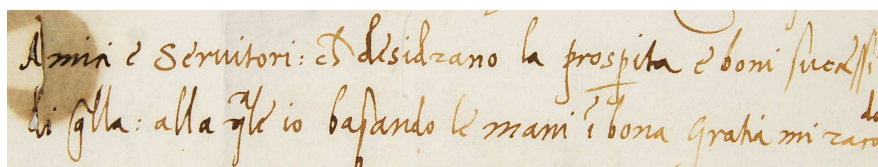 Amici e Servitori: ch desidrano la prospita e boni sucessi
di qlla: alla qle io basando le mani i bona gratia mi raco